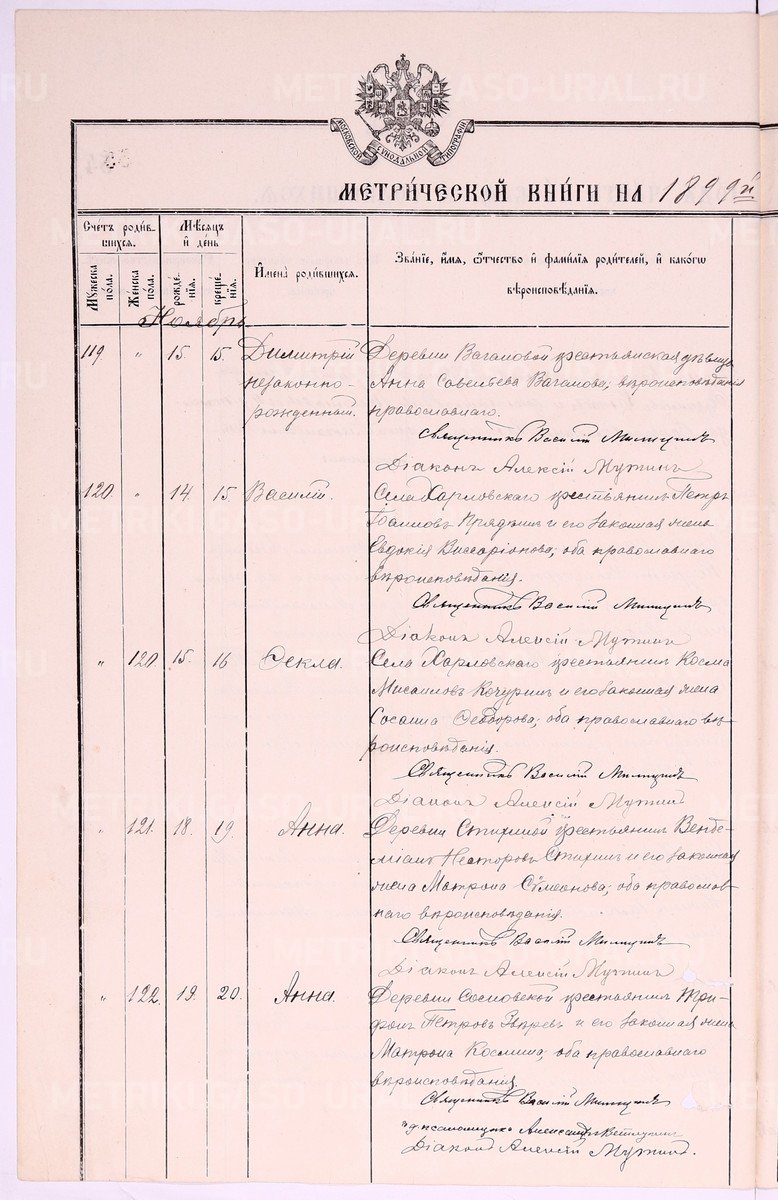 МОСКОВСКОЙ СѴНОДАЛЬНОЙ ТИПОГРАФІИ
МЕТРИ́ЧЕСКОЙ КНИ́ГИ НА 1899й
Счетъ роди́вшихся.
Му́жеска по́ла.
Же́нска по́ла.
Мѣ́сяцъ и҆ де́нь
рожде́нїѧ.
креще́нїѧ.
И҆мена̀ роди́вшихся.
Зва́нїе, и҆́мѧ, ѻ҆́тчество и҆ фами́лїѧ роди́телей, и҆ како́гѡ
вѣроисповѣ́данїѧ.
Ноябрь
119 " 15. 15. Димитрій Деревни Вагановой крестьянская дѣвица
незаконно- Анна Савельева Ваганова, вѣроисповѣданія
рожденный. православнаго.
Священникъ Василій
Діаконъ Алексій
120. " 14. 15. Василій. Села Харловскаго крестьянинъ Петръ
Іоанновъ Прядкинъ и его законная жена
Евдокія Виссаріонова, оба православнаго
вѣроисповѣданія.
Священникъ Василій
Діаконъ Алексій
" 120. 15. 16 Ѳекла. Села Харловскаго крестьянинъ Косма
Мисаиловъ Кочуринъ и его законная жена
Ѳеодорова, оба православнаго вѣ-
роисповѣданія.
Священникъ Василій
Діаконъ Алексій
" 121. 18. 19. Анна. Деревни крестьянинъ
Несторовъ и его законная
жена Матрона Сѵмеонова, оба православ-
наго вѣроисповѣданія.
Священникъ Василій
Діаконъ Алексій
" 122. 19. 20. Анна. Деревни Сосновской крестьянинъ Три-
фонъ Петровъ Звѣревъ и его законная жена
Матрона Космина, оба православнаго
вѣроисповѣданія.
Священникъ Василій
псаломщикъ Александръ
Діаконъ Алексій